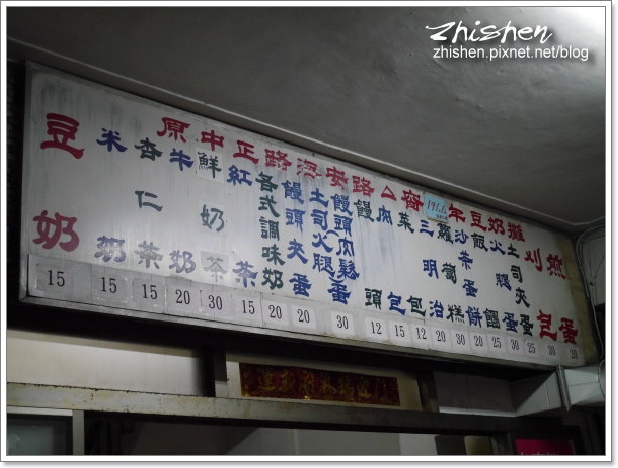 Zhishen
zhishen.pixnet.net/blog
原中正路安路公年豆奶攤
豆奶
米奶
杏仁茶
牛奶
鮮奶茶
紅茶
各式調味奶
饅頭夾蛋
土司火腿蛋
饅頭(肉鬆)
饅頭
肉包
菜包
三明治
蘿蔔糕
沙茶蛋餅
飯糰
火腿蛋
土司夾蛋
刈包
蛋
15 15 15 20 30 15 20 20 30 12 15 12 20 20 20 25 30 25 30